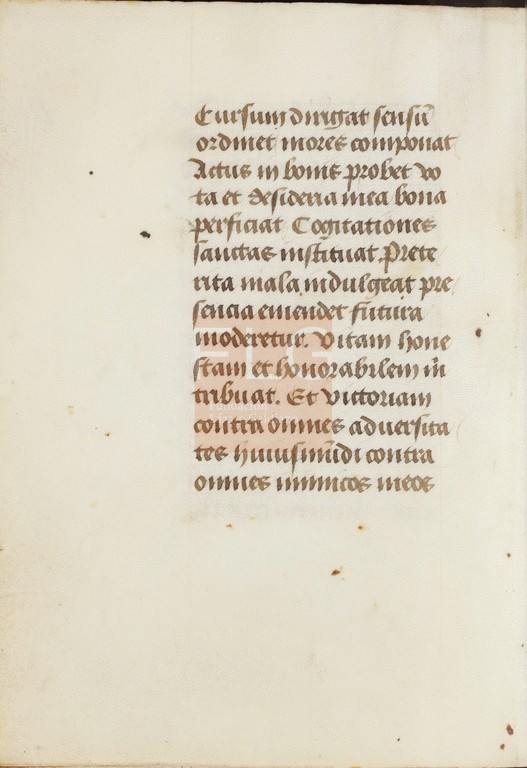 Cursum dirigat sensū
ordinet mores componat
Actus in bonis probet vo
ta et desideria mea bona
perficiat Cogitationes
sanctas instituat. Prete
rita mala indulgeat pre
sencia emendet futura
moderetur. Vitam hone
stam et honorabilem m̄
tribuat. Et victoriam
contra omnes adversita
tes huiusmūdi contra
omnes inimicos meos
FLG
Fundación
Lázaro Galdiano